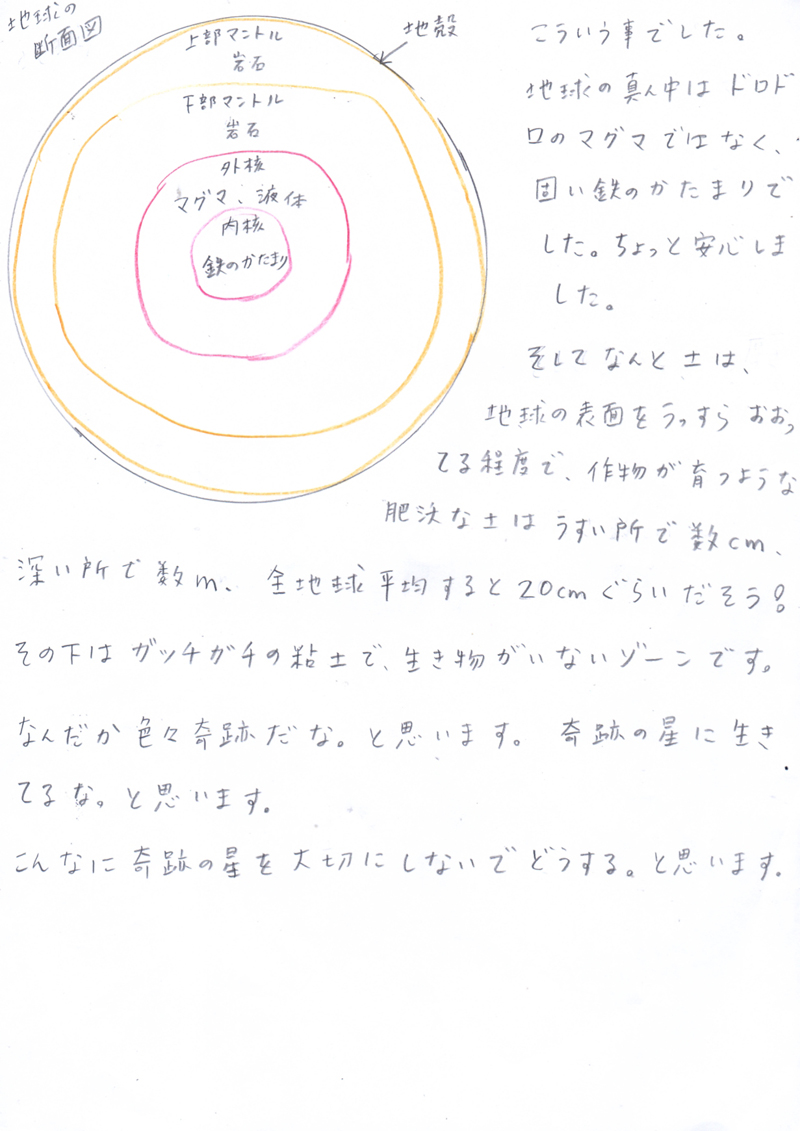 地球の
断面図
地殻
上部マントル
岩石
下部マントル
岩石
外核
マグマ、液体
内核
鉄のかたまり
こういう事でした。
地球の真ん中はドロド
ロのマグマではなく、
固い鉄のかたまりで
した。ちょっと安心しま
した。
そしてなんと土は、
地球の表面をうっすらおおっ
てる程度で、作物が育つような
肥沃な土はうすい所で数cm、
深い所で数m、全地球平均すると20cmぐらいだそう。
その下はガッチガチの粘土で、生き物がいないゾーンです。
なんだか色々奇跡だな。と思います。奇跡の星に生き
てるな。と思います。
こんなに奇跡の星を大切にしないでどうする。と思います。